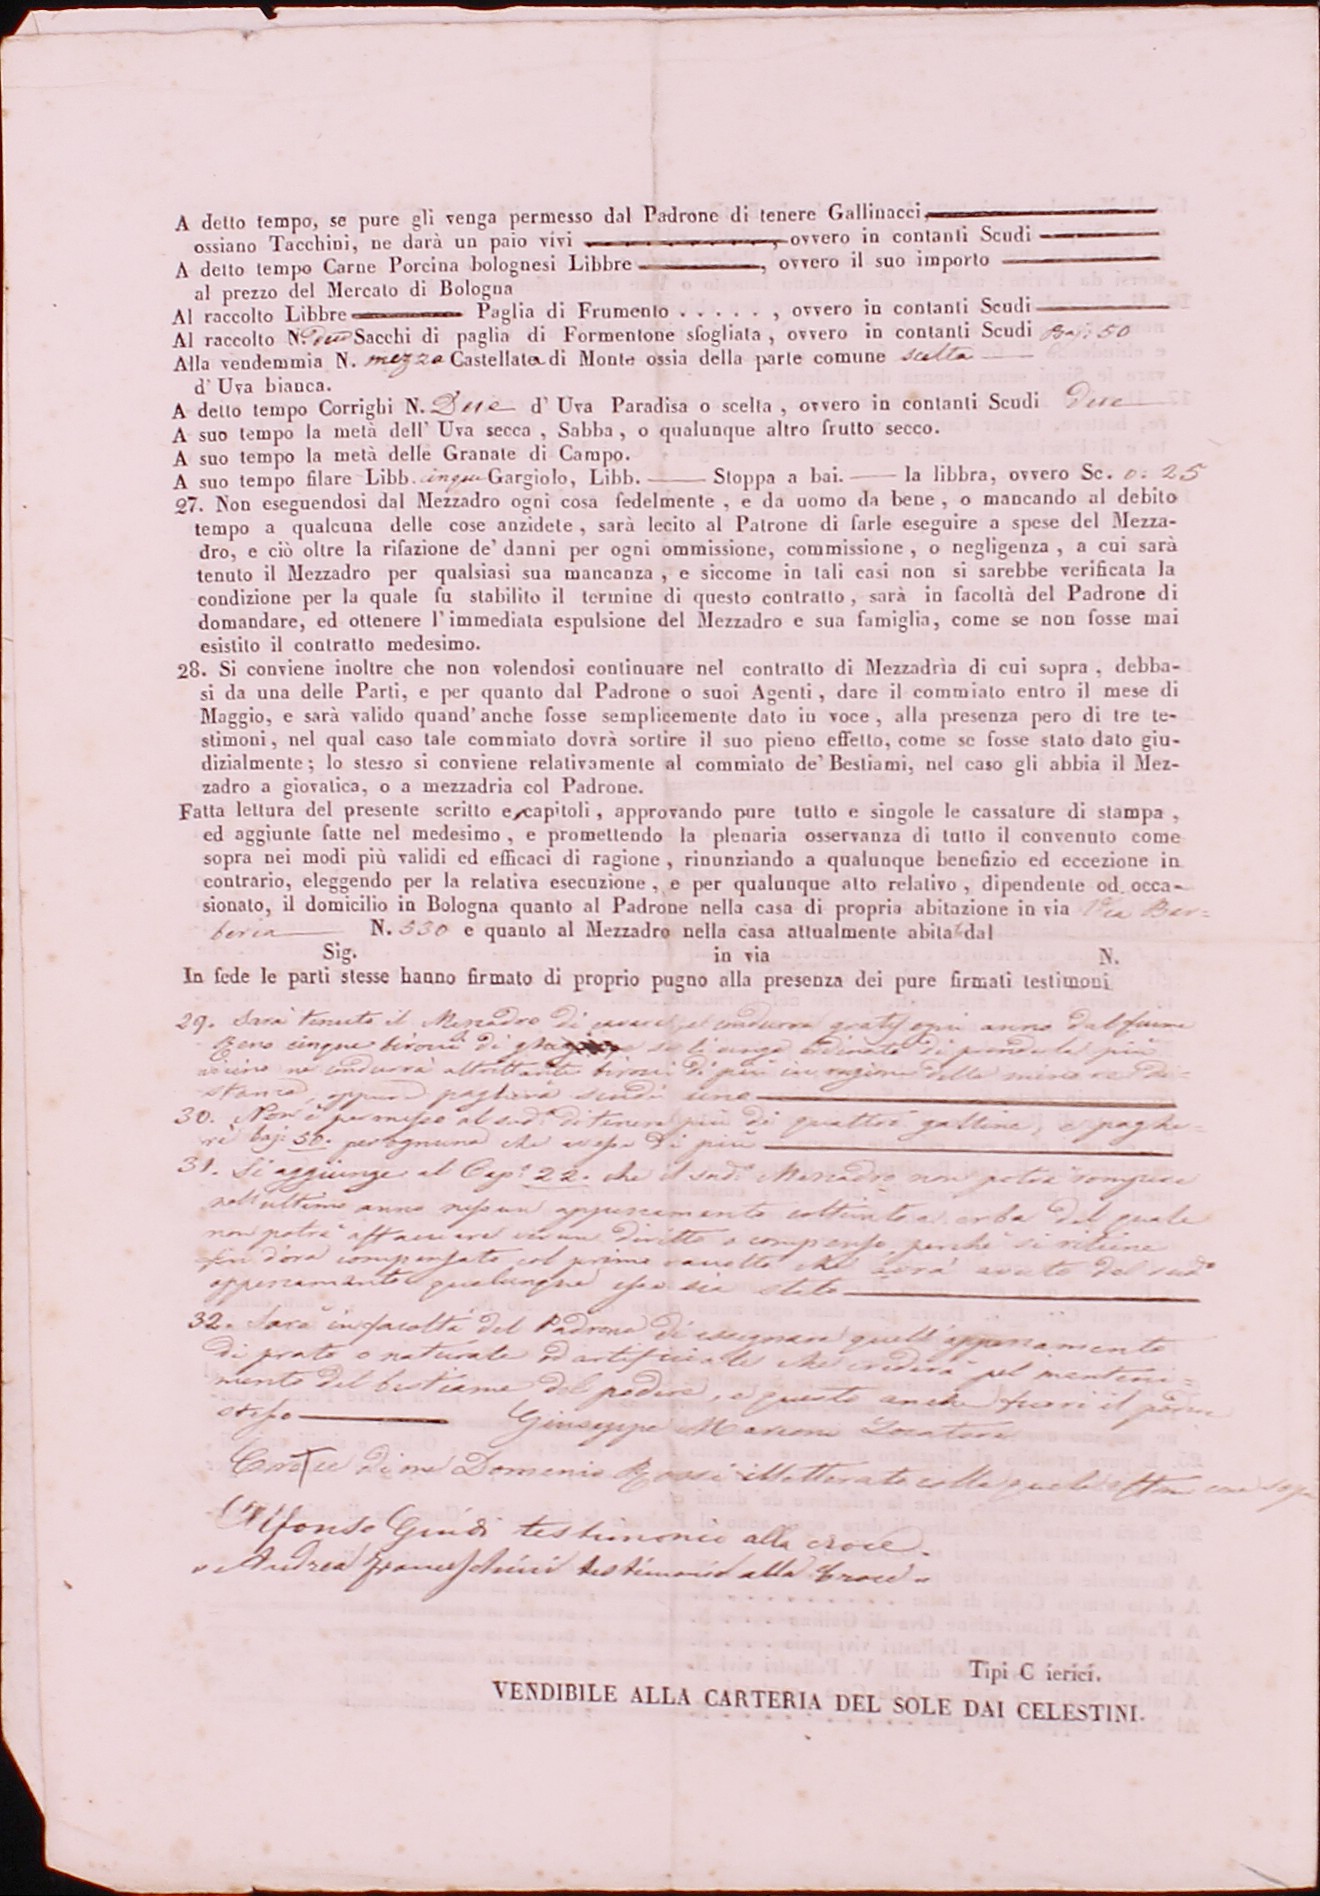 A detto tempo, se pure gli venga permesso dal Padrone di tenere Gallinacci,
ossiano Tacchini, ne darà un paio vivi , ovvero in contanti Scudi
A detto tempo Carne Porcina bolognesi Libbre , ovvero il suo importo
al prezzo del Mercato di Bologna
Al raccolto Libbre Paglia di Frumento . . . . . , ovvero in contanti Scudi
Al raccolto N. due Sacchi di paglia di Formentone sfogliata, ovvero in contanti Scudi Baj: 50
Alla vendemmia N. mezza Castellata di Monte ossia della parte comune scelta
d' Uva bianca.
A detto tempo Corrighi N. Due d' Uva Paradisa o scelta, ovvero in contanti Scudi Due
A suo tempo la metà dell' Uva secca, Sabba, o qualunque altro frutto secco.
A suo tempo la metà delle Granate di Campo.
A suo tempo filare Libb. cinque Gargiolo, Libb. Stoppa a bai. la libbra, ovvero Sc. 0. 25
27. Non eseguendosi dal Mezzadro ogni cosa fedelmente, e da uomo da bene, o mancando al debito
tempo a qualcuna delle cose anzidete, sarà lecito al Patrone di farle eseguire a spese del Mezza-
dro, e ciò oltre la rifazione de' danni per ogni ommissione, commissione, o negligenza, a cui sarà
tenuto il Mezzadro per qualsiasi sua mancanza, e siccome in tali casi non si sarebbe verificata la
condizione per la quale fu stabilito il termine di questo contratto, sarà in facoltà del Padrone di
domandare, ed ottenere l'immediata espulsione del Mezzadro e sua famiglia, come se non fosse mai
esistito il contratto medesimo.
28. Si conviene inoltre che non volendosi continuare nel contratto di Mezzadria di cui sopra, debba-
si da una delle Parti, e per quanto dal Padrone o suoi Agenti, dare il commiato entro il mese di
Maggio, e sarà valido quand'anche fosse semplicemente dato in voce, alla presenza pero di tre te-
stimoni, nel qual caso tale commiato dovrà sortire il suo pieno effetto, come se fosse stato dato giu-
dizialmente; lo stesso si conviene relativamente al commiato de' Bestiami, nel caso gli abbia il Mez-
zadro a giovatica, o a mezzadria col Padrone.
Fatta lettura del presente scritto e capitoli, approvando pure tutto e singole le cassature di stampa,
ed aggiunte fatte nel medesimo, e promettendo la plenaria osservanza di tutto il convenuto come
sopra nei modi più validi ed efficaci di ragione, rinunziando a qualunque benefizio ed eccezione in
contrario, eleggendo per la relativa esecuzione, e per qualunque atto relativo, dipendente od occa-
sionato, il domicilio in Bologna quanto al Padrone nella casa di propria abitazione in via Via Bar=
beria N. 530 e quanto al Mezzadro nella casa attualmente abitata dal
Sig. in via N.
In fede le parti stesse hanno firmato di proprio pugno alla presenza dei pure firmati testimoni
29. Sarà tenuto il Mezzadro di cavare, e condurre gratis ogni anno dal fiume
Reno cinque birocci di di prenderla più
vicino ne condurrà altrettante birocci di più in ragione della minore di=
stanza, oppure pagherà scudi uno
30. Non è permesso al sudd.o di tenere più di quattro galline, e paghe=
rà baj: 50. per ognuna che avesse di più
31. Si aggiunge al Cap.o 22. che il sud.o Mezzadro non potrà rompere
nell'ultimo anno nessun appezzamento coltivato a erba del quale
non potrà affacciare verun diritto o compenso, perchè si ritiene
fin d'ora compensato col primo raccolto che avrà avuto del sud.o
appezzamento qualunque esso sia stato
32. Sarà in facoltà del Padrone di assegnare quell'appezzamento
di prato o naturale od artificiale che crederà pel manteni=
mento del bestiame del podere, e questo anche fuori il podere
stesso Giuseppe Locatore
Croce di me Domenico Rossi illetterato colla quale come sopra
Alfonso Guidi testimonio alla croce.
Andrea Franceschini testimonio alla Croce.
Tipi C ierici.
VENDIBILE ALLA CARTERIA DEL SOLE DAI CELESTINI.